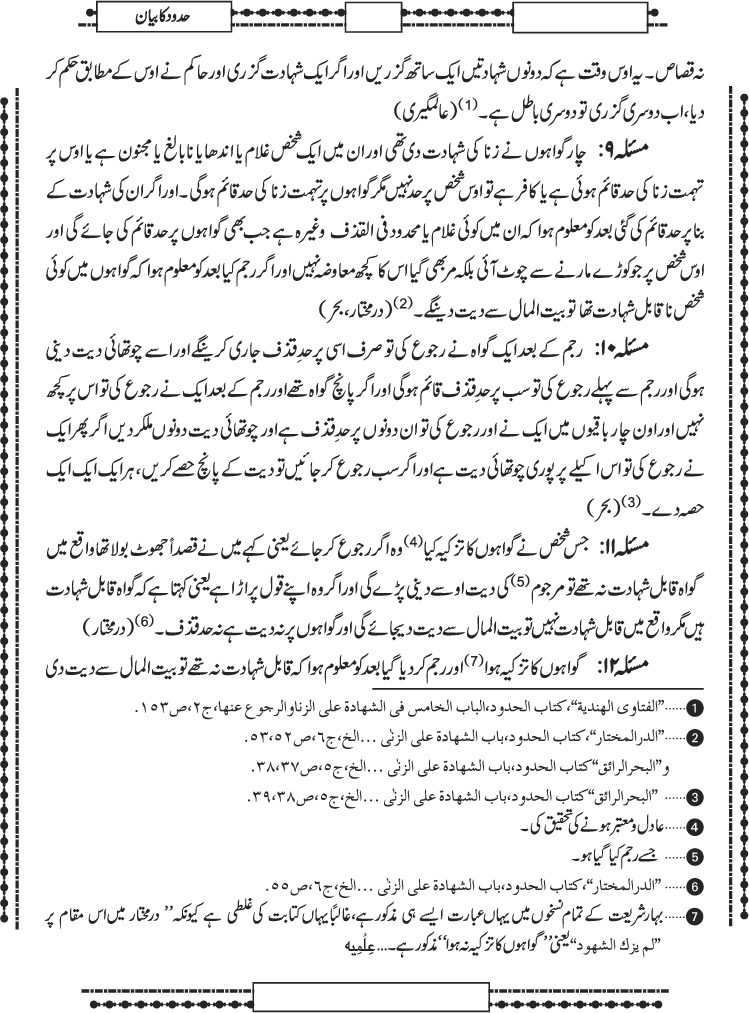 حدود کا بیان
نہ قصاص۔ یہ اوس وقت ہے کہ دونوں شہادتیں ایک ساتھ گزریں اور اگر ایک شہادت گزری اور حاکم نے اوس کے مطابق حکم کر
دیا، اب دوسری گزری تو دوسری باطل ہے۔(1) (عالمگیری)
مسئلہ ۹: چار گواہوں نے زنا کی شہادت دی تھی اور ان میں ایک شخص غلام یا اندھا یا نابالغ یا مجنون ہے یا اوس پر
تہمت زنا کی حد قائم ہوئی ہے یا کافر ہے تو اوس شخص پر حد نہیں مگر گواہوں پر تہمت زنا کی حد قائم ہوگی۔ اور اگر ان کی شہادت کے
بنا پر حد قائم کی گئی بعد کو معلوم ہوا کہ ان میں کوئی غلام یا محدود فی القذف وغیرہ ہے جب بھی گواہوں پر حد قائم کی جائے گی اور
اوس شخص پر جو کوڑے مارنے سے چوٹ آئی بلکہ مر بھی گیا اس کا کچھ معاوضہ نہیں اور اگر رجم کیا بعد کو معلوم ہوا کہ گواہوں میں کوئی
شخص ناقابل شہادت تھا تو بیت المال سے دیت دینگے۔(2) (درمختار، بحر)
مسئلہ ۱۰: رجم کے بعد ایک گواہ نے رجوع کی تو صرف اسی پر حدِ قذف جاری کرینگے اور اسے چوتھائی دیت دینی
ہوگی اور رجم سے پہلے رجوع کی تو سب پر حدِ قذف قائم ہوگی اور اگر پانچ گواہ تھے اور رجم کے بعد ایک نے رجوع کی تو اس پر کچھ
نہیں اور اون چار باقیوں میں ایک نے اور رجوع کی تو ان دونوں پر حدِ قذف ہے اور چوتھائی دیت دونوں ملکر دیں اگر پھر ایک
نے رجوع کی تو اس اکیلے پر پوری چوتھائی دیت ہے اور اگر سب رجوع کر جائیں تو دیت کے پانچ حصے کریں، ہر ایک ایک ایک
حصہ دے۔(3) (بحر)
مسئلہ ۱۱: جس شخص نے گواہوں کا تزکیہ کیا(4) وہ اگر رجوع کر جائے یعنی کہے میں نے قصداً جھوٹ بولا تھا واقع میں
گواہ قابل شہادت نہ تھے تو مرجوم(5) کی دیت اوسے دینی پڑے گی اور اگر وہ اپنے قول پر اڑا ہے یعنی کہتا ہے کہ گواہ قابل شہادت
ہیں مگر واقع میں قابل شہادت نہیں تو بیت المال سے دیت دیجائے گی اور گواہوں پر نہ دیت ہے نہ حد قذف۔(6) (درمختار)
مسئلہ ۱۲: گواہوں کا تزکیہ ہوا(7) اور رجم کر دیا گیا بعد کو معلوم ہوا کہ قابل شہادت نہ تھے تو بیت المال سے دیت دی
1 ......"الفتاوى الهندية"، كتاب الحدود،الباب الخامس فى الشهادة على الزنا والرجوع عنها،ج٢،ص١٥٣.
2 ......"الدرالمختار"، كتاب الحدود،باب الشهادة على الزنى ...الخ،ج٦،ص٥٢،٥٣.
و"البحرالرائق" كتاب الحدود،باب الشهادة على الزنى ...الخ،ج٥،ص٣٧،٣٨.
3 ......"البحرالرائق" كتاب الحدود،باب الشهادة على الزنى ...الخ،ج٥،ص٣٨،٣٩.
4 ......عادل و معتبر ہونے کی تحقیق کی۔
5 ......جسے رجم کیا گیا ہو۔
6 ......"الدرالمختار"، كتاب الحدود،باب الشهادة على الزنى ...الخ،ج٦،ص٥٥.
7 ......بہار شریعت کے تمام نسخوں میں یہاں عبارت ایسے ہی مذکور ہے، غالباً یہاں کتابت کی غلطی ہے کیونکہ "درمختار میں اس مقام پر
"لم يزك الشهود" یعنی "گواہوں کا تزکیہ نہ ہوا" مذکور ہے۔...عِلْمِیہ